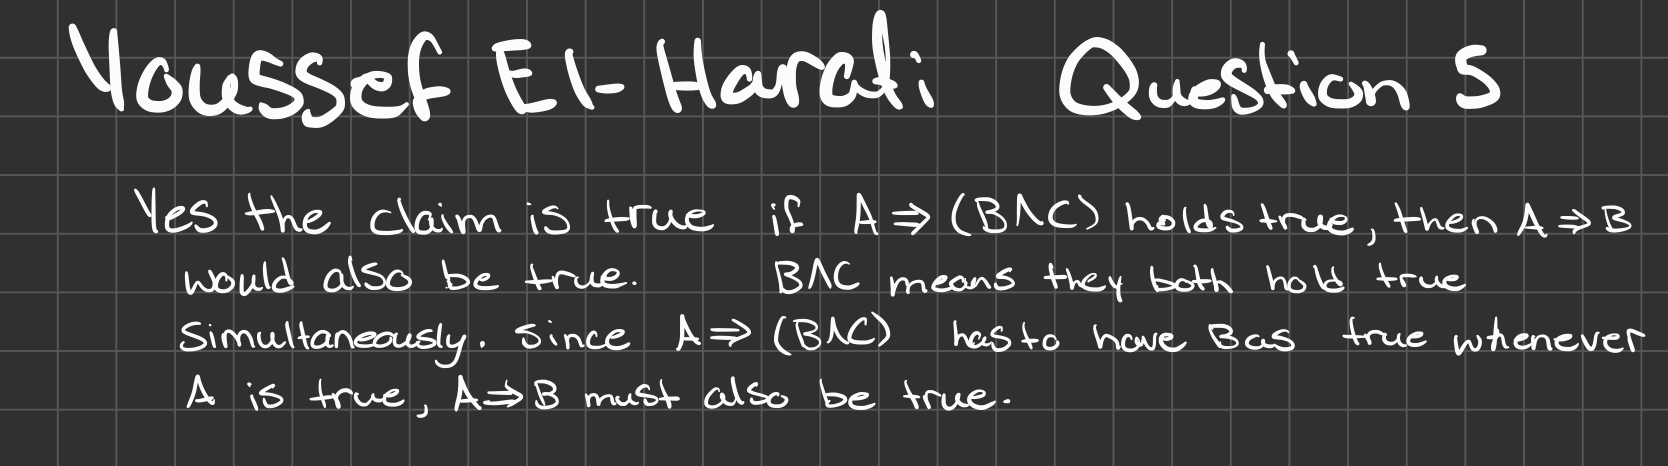 Youssef El-Harati Question 5
Yes the claim is true if A ⇒ (B∧C) holds true, then A ⇒ B
would also be true. B∧C means they both hold true
simultaneously. Since A ⇒ (B∧C) has to have B as true whenever
A is true, A ⇒ B must also be true.